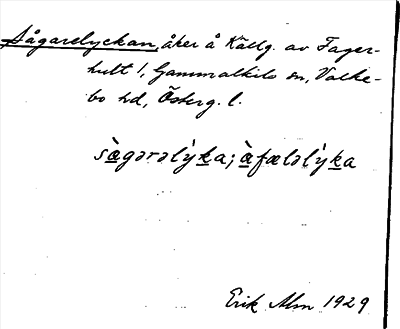 Sågarelyckan, åker å Källg. av Fager-
hult 1, Gammalkils sn, Valke-
bo hd, Österg. l.
sàgərəlýka; àfælәlýka
Erik Alm 1929